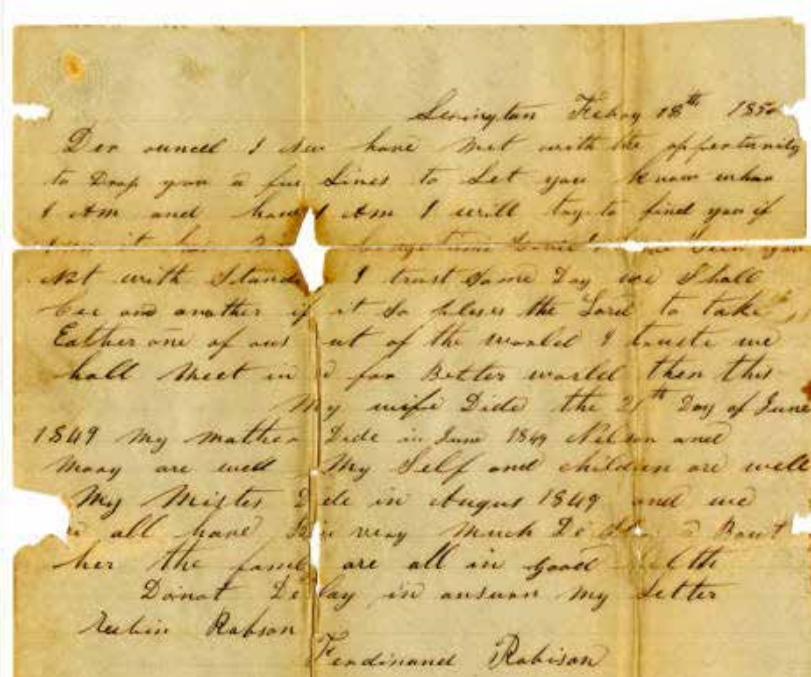 Lexington Febuy 18th 1850
Der ouncel I Now have Met with the oppertunity
to Drop you a fue Lines to Let you know whar
I Am and how I Am I will try to find you if
I can it has long time Since
Not with Stand I trust Some Day we Shall
Cee one another if it So pleses the Lord to take
Eather one of ous ut of the world I truste we
hall Meet in a far Better world then this
My wife Dide the 21th Day of June
1849 My mother Dide in June 1849 Nelson and
Mary are well My Self and children are well
My Mistes D ide in Augus 1849 and we
all have very Much Bout
her the famil are all in good helth
Do not De lay in ansurn My Letter
Reubin Robson
Ferdinand Robison